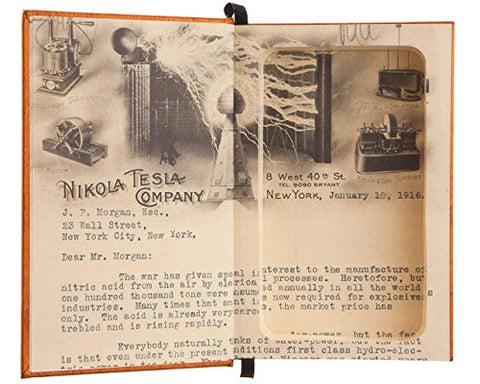 MOTOR
STEAM & GAS TURBINE
NIKOLA TESLA
COMPANY
8 West 40th St.
TEL. 9090 BRYANT
NEW YORK, January 10, 1916.
J. P. Morgan, Esq.,
23 Wall Street,
New York City, New York.
Dear Mr. Morgan:
The war has given speal interest to the manufacture of
nitric acid from the air by Heretofore, but
one hundred thousand tons were annually in all the world
industries. Many times that is now required for explosives
only. The acid is already very the market price has
trebled and is rising rapidly.
Everybody naturally inks of water-power, but the fact
is that even under the present nditions first class hydro-elec-